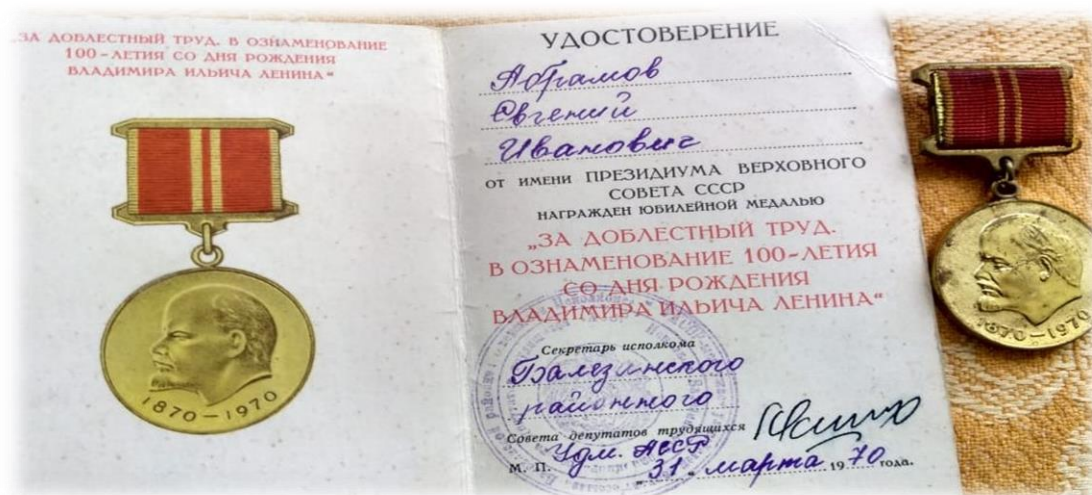 „ЗА ДОБЛЕСТНЫЙ ТРУД. В ОЗНАМЕНОВАНИЕ
100-ЛЕТИЯ СО ДНЯ РОЖДЕНИЯ
ВЛАДИМИРА ИЛЬИЧА ЛЕНИНА“
1870-1970
УДОСТОВЕРЕНИЕ
Абрамов
Евгений
Иванович
ОТ ИМЕНИ ПРЕЗИДИУМА ВЕРХОВНОГО
СОВЕТА СССР
НАГРАЖДЕН ЮБИЛЕЙНОЙ МЕДАЛЬЮ
„ЗА ДОБЛЕСТНЫЙ ТРУД.
В ОЗНАМЕНОВАНИЕ 100-ЛЕТИЯ
СО ДНЯ РОЖДЕНИЯ
ВЛАДИМИРА ИЛЬИЧА ЛЕНИНА“
Секретарь исполкома
Балезинского
районного
Совета депутатов трудящихся
Удм. АССР
М. П. „31“ марта 1970 года.
1870-1970